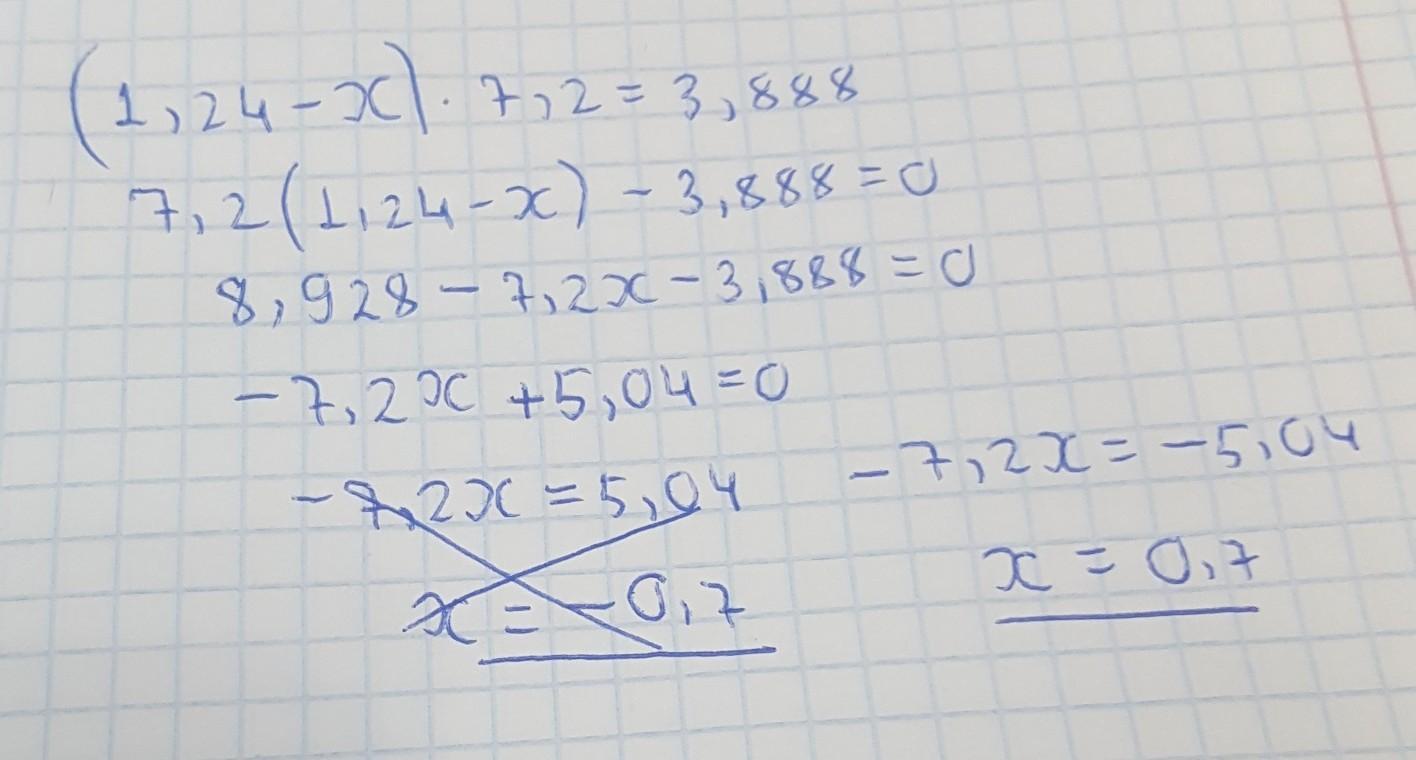 (1,24-x)·7,2=3,888
7,2(1,24-x)-3,888=0
8,928-7,2x-3,888=0
-7,2x+5,04=0
-7,2x=5,04
x=-0,7
-7,2x=-5,04
x=0,7